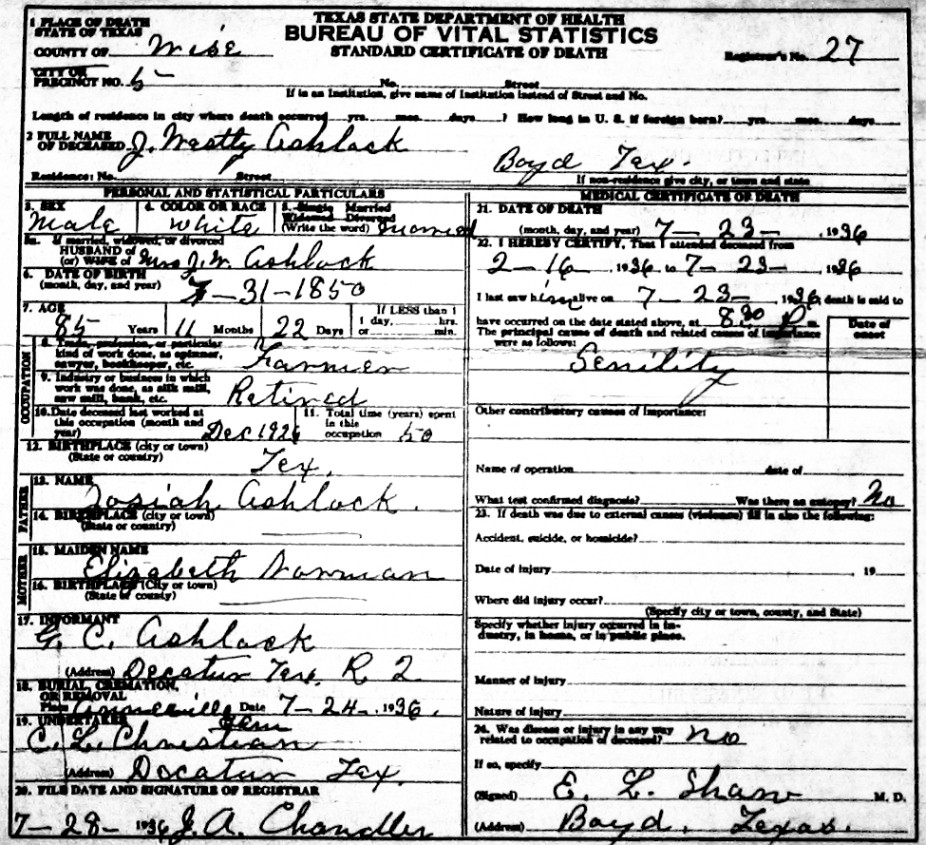 TEXAS STATE DEPARTMENT OF HEALTH
BUREAU OF VITAL STATISTICS
STANDARD CERTIFICATE OF DEATH
1 PLACE OF DEATH
STATE OF TEXAS
COUNTY OF Wise
Registrar's No. 27
CITY OR
PRECINCT NO. 5
No. Street
If in an Institution, give name of Institution instead of Street and No.
Length of residence in city where death occurred yrs. mos. days ? How long in U. S. if foreign born? yrs. mos. days
2 FULL NAME
OF DECEASED J. Ashlock
Residence: No. Street Boyd Tex.
If non-residence give city, or town and state
PERSONAL AND STATISTICAL PARTICULARS
3. SEX Male
4. COLOR OR RACE White
5. Single Married
Widowed Divorced
(Write the word) married
5a. If married, widowed, or divorced
HUSBAND of
(or) WIFE of Mrs J. W. Ashlock
6. DATE OF BIRTH
(month, day, and year) 7-31-1850
7. AGE
85 Years 11 Months 22 Days
If LESS than 1
1 day, hrs.
or min.
OCCUPATION
8. Trade, profession, or particular
kind of work done, as spinner,
sawyer, bookkeeper, etc. Farmer
9. Industry or business in which
work was done, as silk mill,
saw mill, bank, etc. Retired
10. Date deceased last worked at
this occupation (month and
year) Dec 1926
11. Total time (years) spent
in this
occupation 50
12. BIRTHPLACE (city or town)
(State or country) Tex.
FATHER
13. NAME
Josiah Ashlock.
14. BIRTHPLACE (city or town)
(State or country)
MOTHER
15. MAIDEN NAME
Elizabeth Norman
16. BIRTHPLACE (City or town)
(State or county)
17. INFORMANT
G. C. Ashlock
(Address) Decatur Tex. R 2
18. BURIAL, CREMATION,
OR REMOVAL
Place Annieville Cem Date 7-24-1936.
19. UNDERTAKER
C. L. Christian
(Address) Decatur Tex.
20. FILE DATE AND SIGNATURE OF REGISTRAR
7-28-1936 J. A. Chandler
MEDICAL CERTIFICATE OF DEATH
21. DATE OF DEATH
(month, day, and year) 7-23-1936
22. I HEREBY CERTIFY, That I attended deceased from
2-16 1936 to 7-23-, 1936
I last saw him alive on 7-23-1936, death is said to
have occurred on the date stated above, at 8:30 P m.
The principal cause of death and related causes of importance
were as follows:
Date of
onset
Senility
Other contributory causes of importance:
Name of operation date of
What test confirmed diagnosis? Was there an autopsy? No
23. If death was due to external causes (violence) fill in also the following:
Accident, suicide, or homicide?
Date of injury 19
Where did injury occur?
(Specify city or town, county, and State)
Specify whether injury occurred in in-
dustry, in home, or in public place.
Manner of injury
Nature of injury
24. Was disease or injury in any way
related to occupation of deceased? no
If so, specify
(Signed) E. L. Shaw M. D.
(Address) Boyd. Texas.